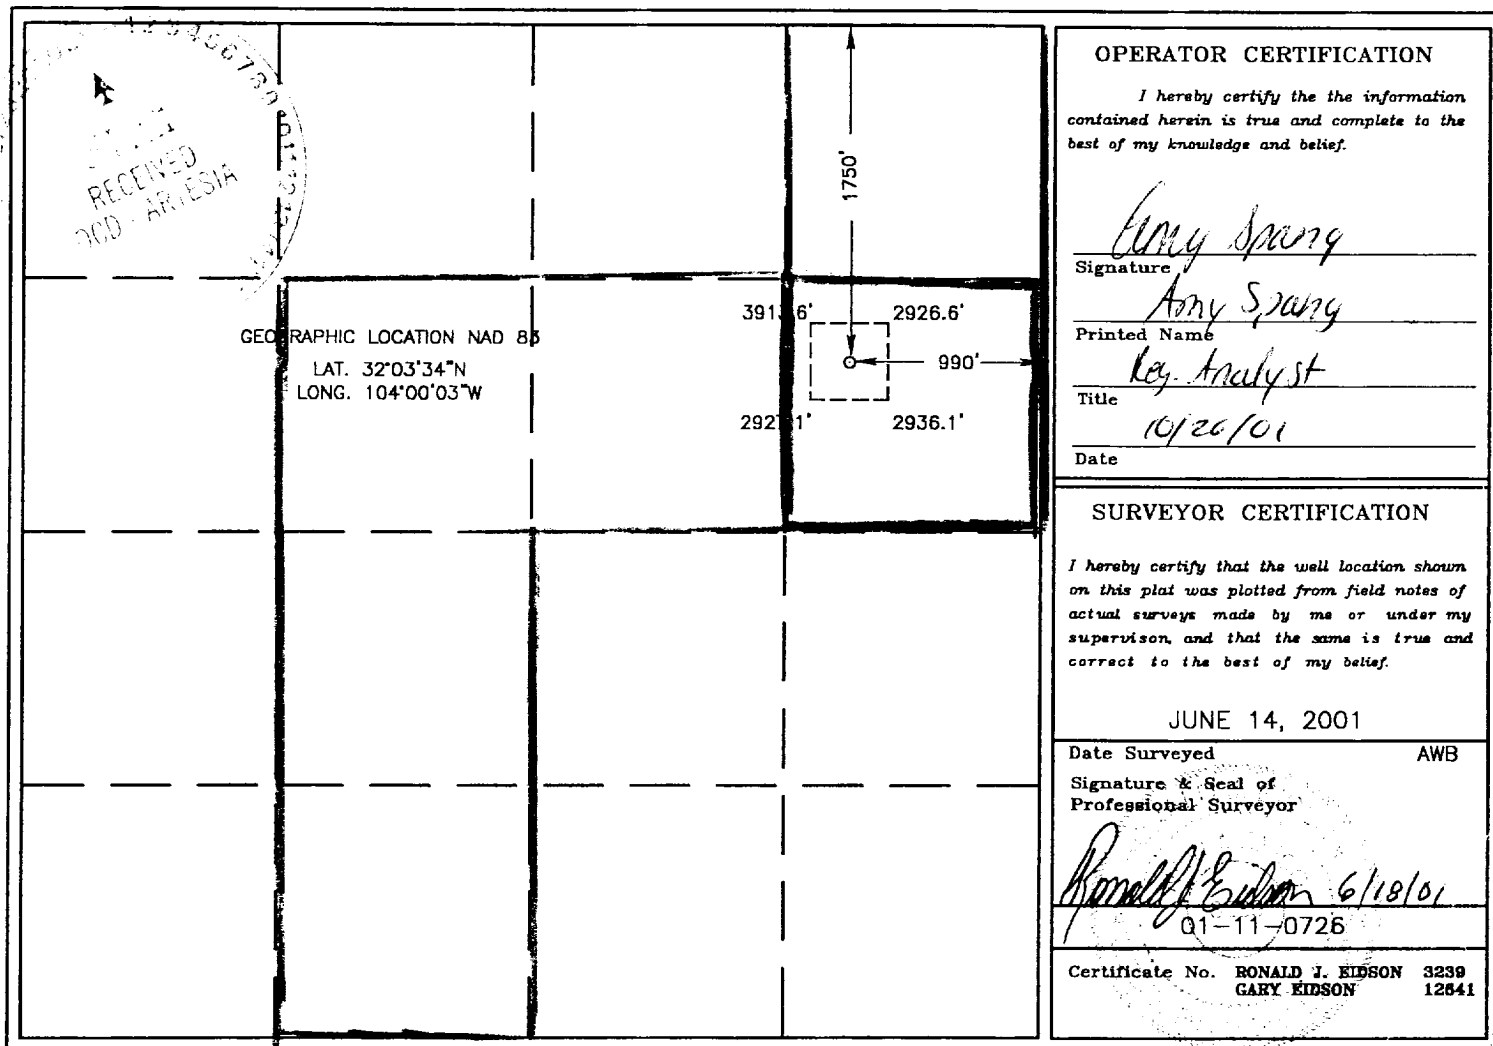 RECEIVED
OCD - ARTESIA
1750'
2926.6'
GEOGRAPHIC LOCATION NAD 83
LAT. 32°03'34"N
LONG. 104°00'03"W
990'
2936.1'
OPERATOR CERTIFICATION
I hereby certify the the information
contained herein is true and complete to the
best of my knowledge and belief.
Amy Spang
Signature
Amy Spang
Printed Name
Reg. Analyst
Title
10/26/01
Date
SURVEYOR CERTIFICATION
I hereby certify that the well location shown
on this plat was plotted from field notes of
actual surveys made by me or under my
supervison, and that the same is true and
correct to the best of my belief.
JUNE 14, 2001
Date Surveyed AWB
Signature & Seal of
Professional Surveyor
Ronald J Eidson 6/18/01
01-11-0726
Certificate No. RONALD J. EIDSON 3239
GARY EIDSON 12641